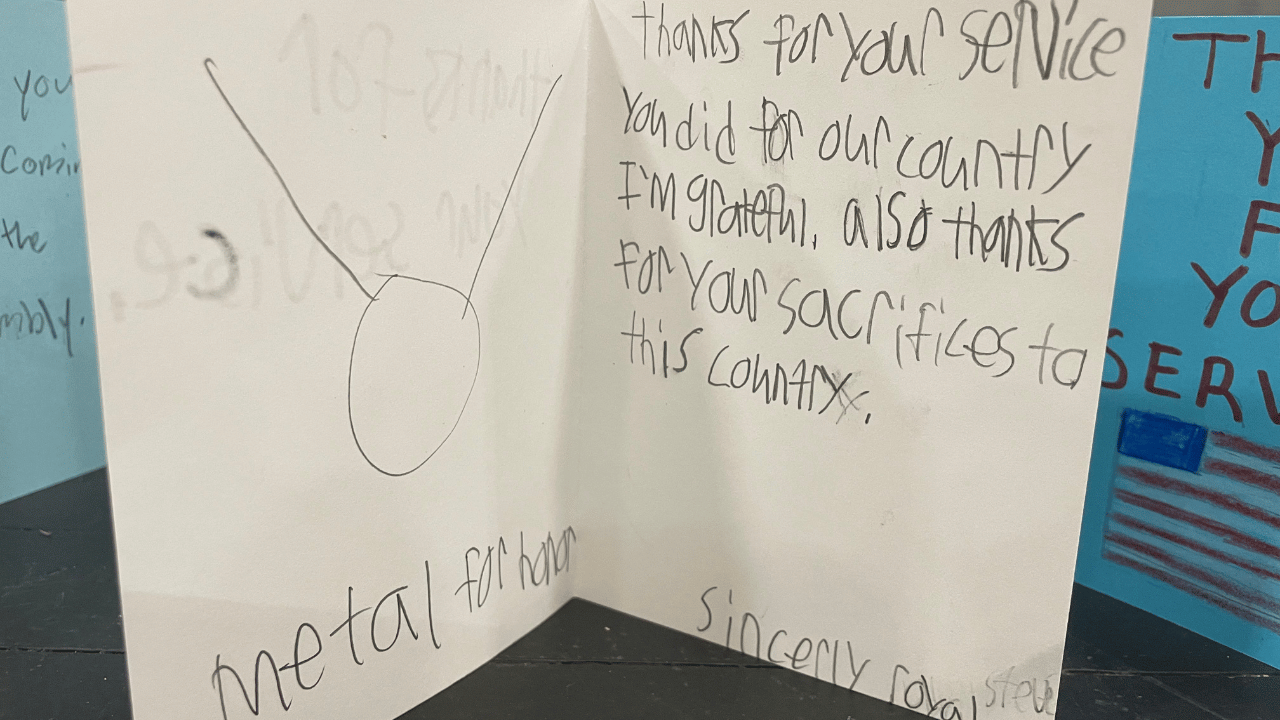 you
the
thanks for
your service.
metal for honor
thanks for your service
you did for our country
I'm grateful. also thanks
for your sacrifices to
this country.
sincerly royal steve
TH
Y
F
YO
SERV